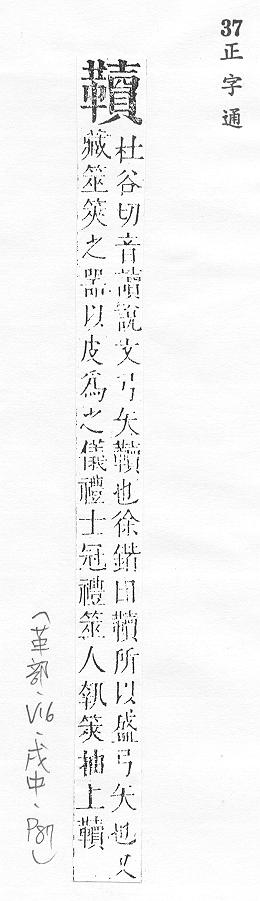 37
正字通
韇
杜谷切音讀說文弓矢韇也徐鍇曰韇所以盛弓矢也又
藏筮筴之器以皮爲之儀禮士冠禮筮人執筴抽上韇
(革部、V16、戌中、P87)